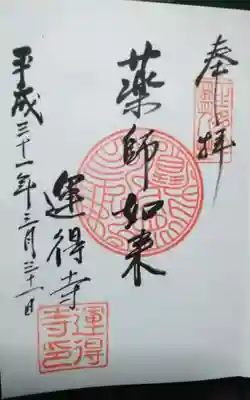 奉拝
薬師如来
運得寺
平成三十一年三月三十一日
運得
寺印